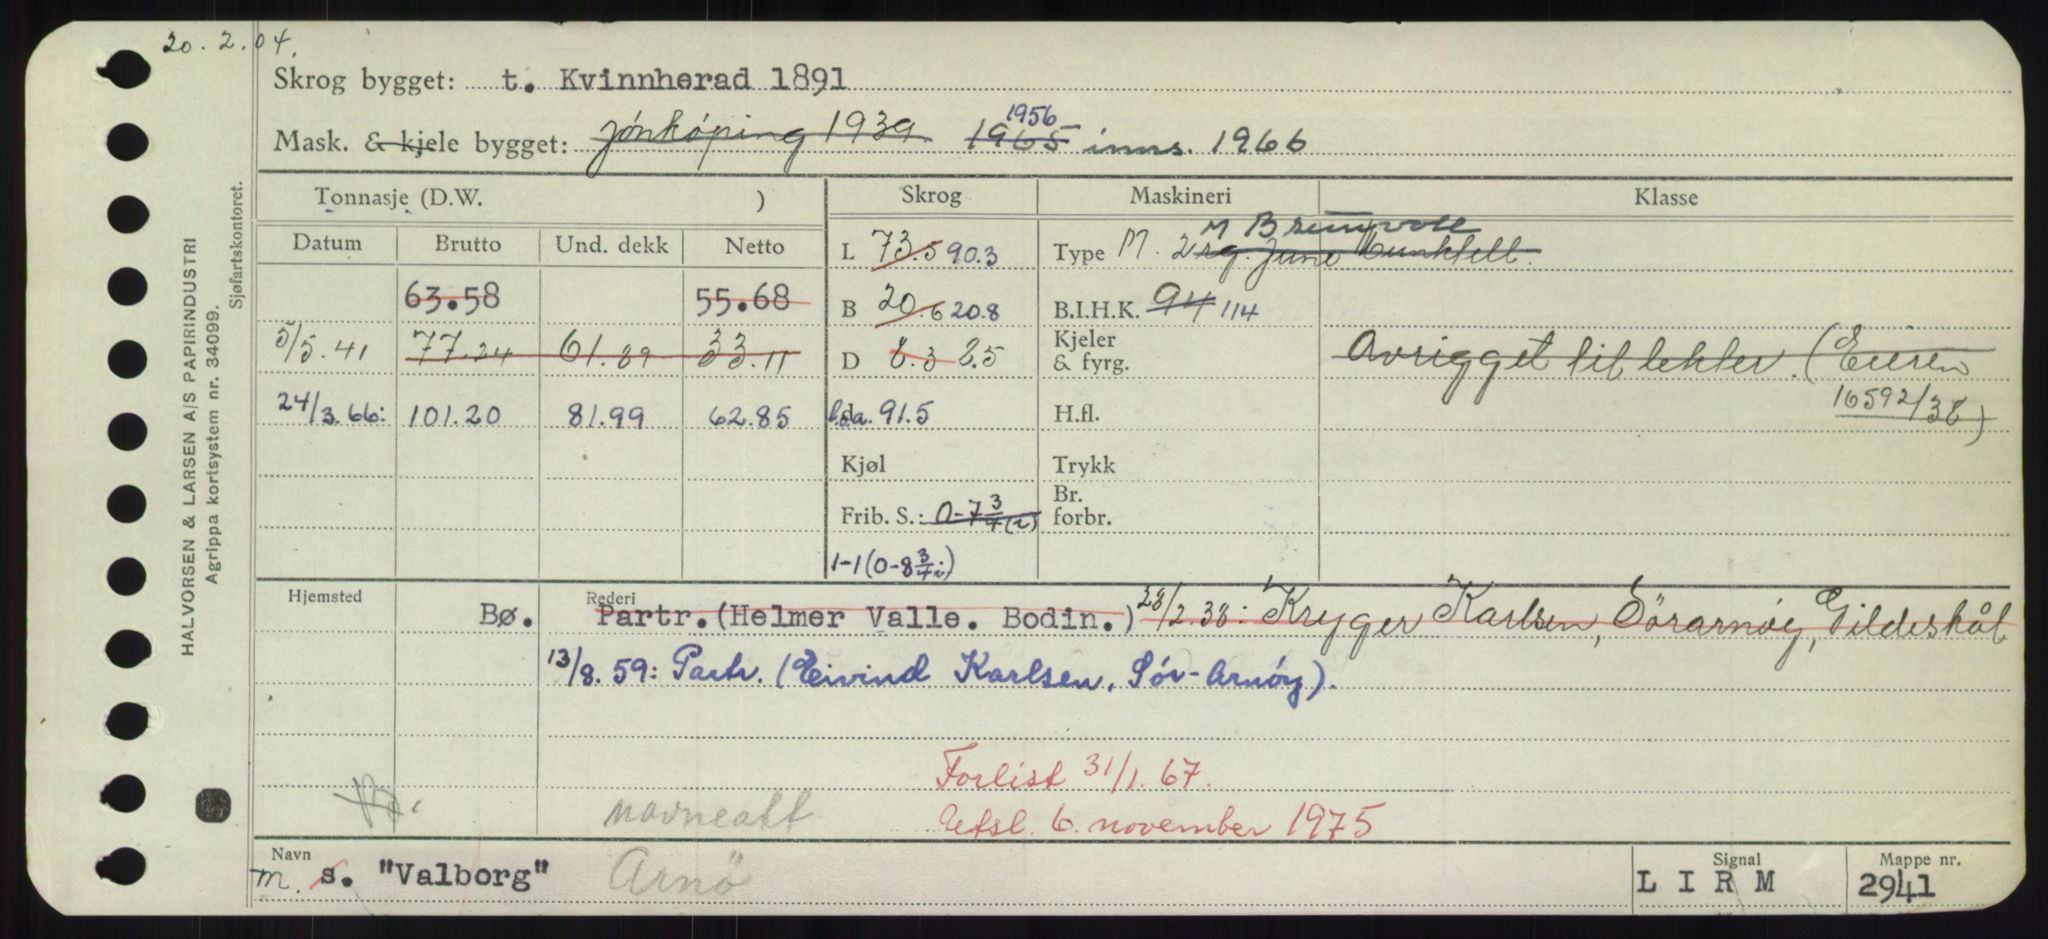 20.2.04.
Skrog bygget: t. Kvinnherad 1891
Mask. & kjele bygget: Jönköping 1939 1965 1956 inns. 1966
Tonnasje (D.W. ) Skrog Maskineri Klasse
Datum Brutto Und. dekk Netto
L 73.5 90.3 Type M. 2rg. June Munktell. M Brunvoll
63.58 55.68 B 20.6 20.8 B.I.H.K. 94 114
5/5.41 77.24 61.89 33.11 D 8.3 8.5 Kjeler & fyrg. Avrigget til lekter. (Eieren
16592/38)
24/3.66: 101.20 81.99 62.85 l.o.a. 91.5 H.fl.
Kjøl Trykk
Frib. S.: 0-7 3/4 (i) Br. forbr.
1-1 (0-8 3/4 i)
Hjemsted Rederi
Bø. Partr. (Helmer Valle. Bodin.) 28/2.38: Kryger Karlsen, Sörarnöy, Gildeskål
13/8.59: Partr. (Eivind Karlsen, Sör-Arnöy).
Forlist 31/1.67.
navneatt Utsl. 6. november 1975
Navn Signal Mappe nr.
m. s. "Valborg" Arnö L I R M 2941
HALVORSEN & LARSEN A/S PAPIRINDUSTRI
Agrippa kortsystem nr. 34099.
Sjøfartskontoret.